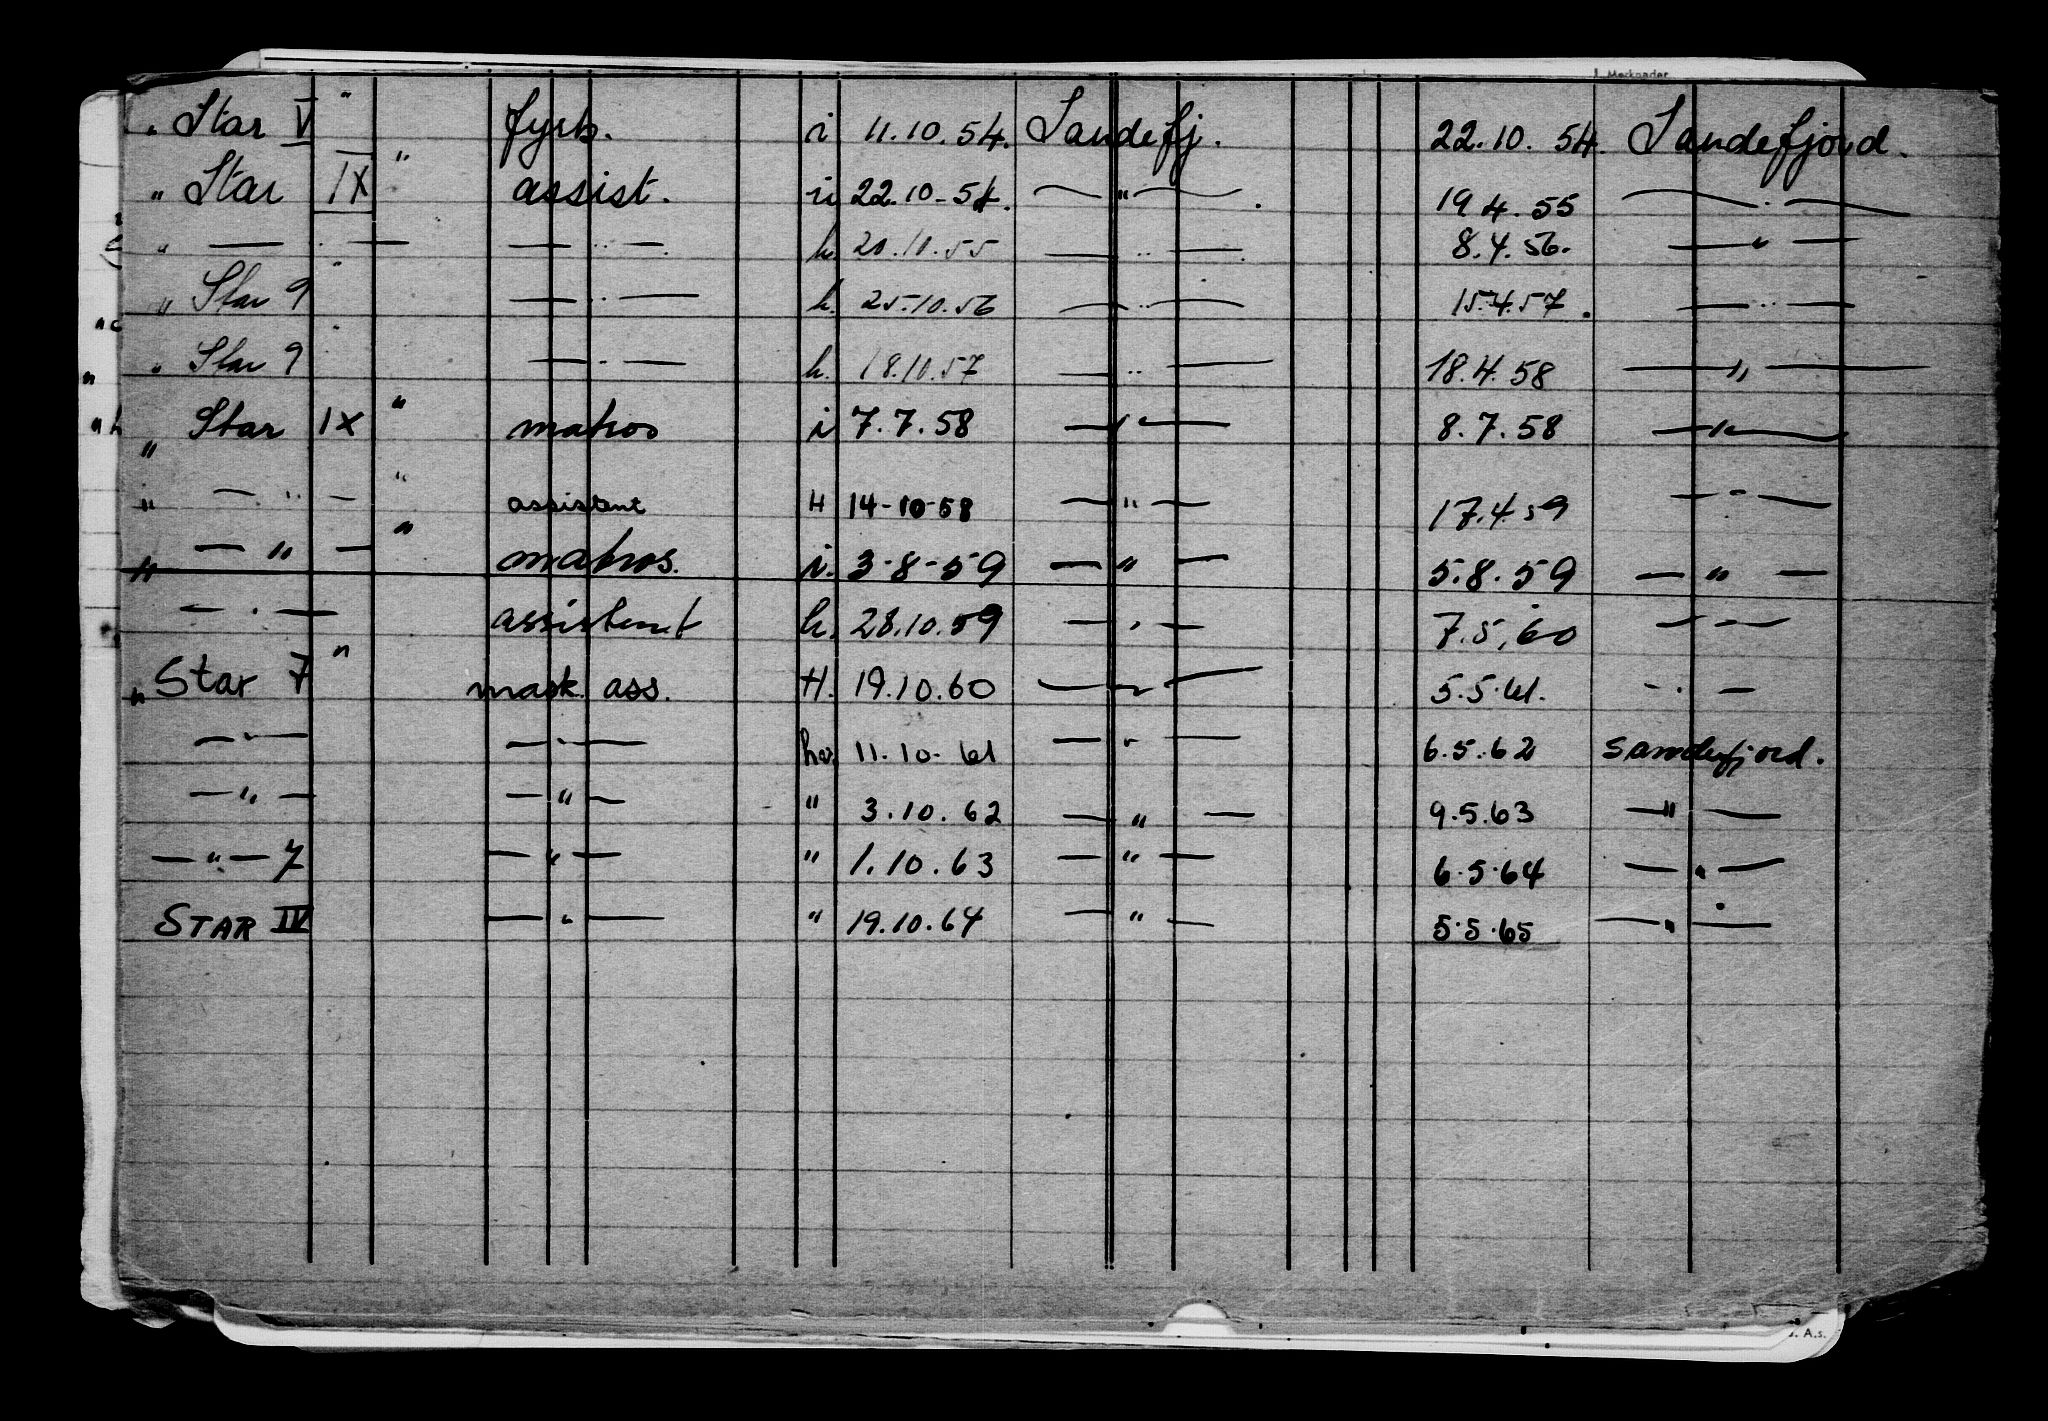 Merknader
" Star V " fyrb. i 11.10.54. Sandefj. 22.10.54. Sandefjord.
" Star IX " assist. i 22.10-54. — " — 19.4.55 — " —
" — " — — " — h. 20.10.55 — " — 8.4.56. — " —
" Star 9 " — " — h. 25.10.56 — " — 15.4.57. — " —
" Star 9 " — " — h. 18.10.57 — " — 18.4.58 — " —
" Star IX " matros i 7.7.58 — " — 8.7.58 — " —
" — " — " assistent H 14-10-58 — " — 17.4.59 — " —
" — " — " matros. i. 3-8-59 — " — 5.8.59 — " —
— " — assistent h. 28.10.59 — " — 7.5.60 — " —
" Star 7 " mask. ass. H. 19.10.60 — " — 5.5.61. — " —
— " — — " — hv. 11.10-61 — " — 6.5.62 Sandefjord.
— " — — " — " 3.10.62 — " — 9.5.63 — " —
— " — 7 — " — " 1.10.63 — " — 6.5.64 — " —
STAR IV — " — " 19.10.64 — " — 5.5.65 — " —
A.s.